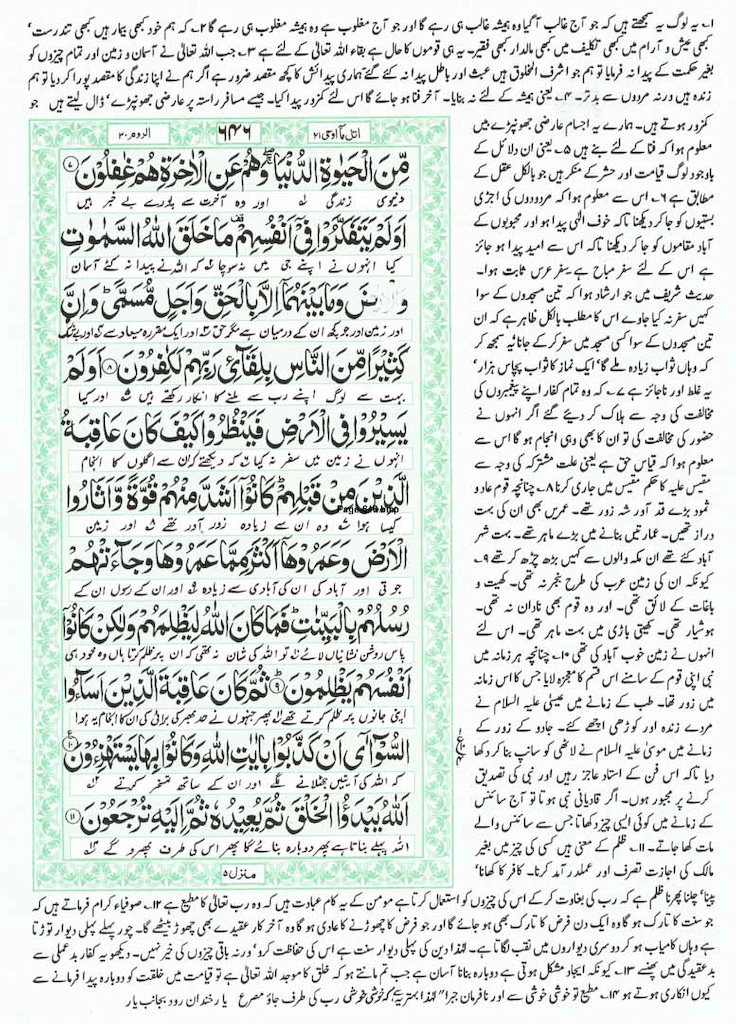 ۱۔ یہ لوگ یہ سمجھتے ہیں کہ جو آج غالب آگیا وہ ہمیشہ غالب ہی رہے گا اور جو آج مغلوب ہے وہ ہمیشہ مغلوب ہی رہے گا ۲۔ کہ ہم خود کبھی بیمار ہیں کبھی تندرست'
کبھی عیش و آرام میں کبھی تکلیف میں کبھی مالدار کبھی فقیر۔ یہ ہی قوموں کا حال ہے بقاء اللہ تعالیٰ کے لئے ہے ۳۔ جب اللہ تعالیٰ نے آسمان و زمین اور تمام چیزوں کو
بغیر حکمت کے پیدا نہ فرمایا تو ہم جو اشرف المخلوق ہیں عبث اور باطل پیدا نہ کئے گئے ہماری پیدائش کا کچھ مقصد ضرور ہے اگر ہم نے اپنا زندگی کا مقصد پورا کر دیا تو ہم
زندہ ہیں ورنہ مردوں سے بدتر۔ ۴۔ یعنی ہمیشہ کے لئے نہ بنایا۔ آخر فنا ہو جائے گا اس لئے کمزور پیدا کیا۔ جیسے مسافر راستہ پر عارضی جھونپڑے ڈال لیتے ہیں جو
اتل مآ اوحی ۲۱
۶۴۶
الروم ۳۰
مِّنَ الْحَيٰوةِ الدُّنْيَا ۚ وَهُمْ عَنِ الْاٰخِرَةِ هُمْ غٰفِلُوْنَ ۷
دنیوی زندگی اور وہ آخرت سے پورے بے خبر ہیں
اَوَلَمْ يَتَفَكَّرُوْا فِيْٓ اَنْفُسِهِمْ مَا خَلَقَ اللّٰهُ السَّمٰوٰتِ
کیا انہوں نے اپنے جی میں نہ سوچا کہ اللہ نے پیدا نہ کئے آسمان
وَالْاَرْضَ وَمَا بَيْنَهُمَآ اِلَّا بِالْحَقِّ وَاَجَلٍ مُّسَمًّى ۭ وَاِنَّ
اور زمین اور جو کچھ ان کے درمیان ہے مگر حق اور ایک مقررہ میعاد سے اور بیشک
كَثِيْرًا مِّنَ النَّاسِ بِلِقَآئِ رَبِّهِمْ لَكٰفِرُوْنَ ۸ اَوَلَمْ
بہت سے لوگ اپنے رب سے ملنے کا انکار رکھتے ہیں اور کیا
يَسِيْرُوْا فِي الْاَرْضِ فَيَنْظُرُوْا كَيْفَ كَانَ عَاقِبَةُ
انہوں نے زمین میں سفر نہ کیا کہ دیکھتے کہ ان سے اگلوں کا انجام
الَّذِيْنَ مِنْ قَبْلِهِمْ ۭ كَانُوْٓا اَشَدَّ مِنْهُمْ قُوَّةً وَّاَثَارُوا
کیسا ہوا وہ ان سے زیادہ زور آور تھے اور زمین
الْاَرْضَ وَعَمَرُوْهَآ اَكْثَرَ مِمَّا عَمَرُوْهَا وَجَآءَتْهُمْ
جوتی اور آباد کی ان کی آبادی سے زیادہ اور ان کے رسول ان کے
رُسُلُهُمْ بِالْبَيِّنٰتِ ۭ فَمَا كَانَ اللّٰهُ لِيَظْلِمَهُمْ وَلٰكِنْ كَانُوْٓا
پاس روشن نشانیاں لائے تو اللہ کی شان نہ تھی کہ ان پر ظلم کرتا ہاں وہ خود ہی
اَنْفُسَهُمْ يَظْلِمُوْنَ ۹ ثُمَّ كَانَ عَاقِبَةَ الَّذِيْنَ اَسَآءُوا
اپنی جانوں پر ظلم کرتے تھے پھر جنہوں نے حد بھر کی برائی کی ان کا انجام یہ ہوا
السُّوْٓاٰى اَنْ كَذَّبُوْا بِاٰيٰتِ اللّٰهِ وَكَانُوْا بِهَا يَسْتَهْزِءُوْنَ ۱۰
کہ اللہ کی آیتیں جھٹلانے لگے اور ان کے ساتھ تمسخر کرتے
اَللّٰهُ يَبْدَؤُا الْخَلْقَ ثُمَّ يُعِيْدُهٗ ثُمَّ اِلَيْهِ تُرْجَعُوْنَ ۱۱
اللہ پہلے بناتا ہے پھر دوبارہ بنائے گا پھر اس کی طرف پھرو گے
منزل ۵
Page 646.bmp
کمزور ہوتے ہیں۔ ہمارے یہ اجسام عارضی جھونپڑے ہیں
معلوم ہوا کہ فنا کے لئے بنے ہیں ۵۔ یعنی ان دلائل کے
باوجود لوگ قیامت اور حشر کے منکر ہیں جو بالکل عقل کے
مطابق ہے ۶۔ اس سے معلوم ہوا کہ مردودوں کی اجڑی
بستیوں کو جا کر دیکھنا تاکہ خوف الٰہی پیدا ہو اور محبوبوں کے
آباد مقاموں کو جا کر دیکھنا تاکہ اس سے امید پیدا ہو جائز
ہے اس کے لئے سفر مباح ہے سفر عرس ثابت ہوا۔
حدیث شریف میں جو ارشاد ہوا کہ تین مسجدوں کے سوا
کہیں سفر نہ کیا جاوے اس کا مطلب بالکل ظاہر ہے کہ ان
تین مسجدوں کے سوا کسی مسجد میں سفر کر کے جانا یہ سمجھ کر
کہ وہاں ثواب زیادہ ملے گا' ایک نماز کا ثواب پچاس ہزار'
یہ غلط اور ناجائز ہے ۷۔ کہ وہ تمام کفار اپنے پیغمبروں کی
مخالفت کی وجہ سے ہلاک کر دیئے گئے اگر انہوں نے
حضور کی مخالفت کی تو ان کا بھی وہی انجام ہو گا اس سے
معلوم ہوا کہ قیاس حق ہے یعنی علت مشترکہ کی وجہ سے
مقیس علیہ کا حکم مقیس میں جاری کرنا ۸۔ چنانچہ قوم عاد و
ثمود بڑے قد آور شہ زور تھے۔ عمریں بھی ان کی بہت
دراز تھیں۔ عمارتیں بنانے میں بڑے ماہر تھے۔ بہت شہر
آباد کئے تھے ان مکہ والوں سے کہیں بڑھ چڑھ کر تھے ۹۔
کیونکہ ان کی زمین عرب کی طرح بنجر نہ تھی۔ کھیت و
باغات کے لائق تھی۔ اور وہ قوم بھی نادان نہ تھی۔
ہوشیار تھی۔ کھیتی باڑی میں بہت ماہر تھی۔ اس لئے
انہوں نے زمین خوب آباد کی تھی ۱۰۔ چنانچہ ہر زمانہ میں
نبی اپنی قوم کے سامنے اس قسم کا معجزہ لایا جس کا اس زمانہ
میں زور تھا۔ طب کے زمانے میں عیسیٰ علیہ السلام نے
مردے زندہ اور کوڑھی اچھے کئے۔ جادو کے زور کے
زمانے میں موسیٰ علیہ السلام نے لاٹھی کو سانپ بنا کر دکھا
دیا تاکہ اس فن کے استاد عاجز رہیں اور نبی کی تصدیق
کرنے پر مجبور ہوں۔ اگر قادیانی نبی ہوتا تو آج سائنس
کے زمانے میں کوئی ایسی چیز دکھاتا جس سے سائنس والے
مات کھا جاتے۔ ۱۱۔ ظلم کے معنی ہیں کسی کی چیز میں بغیر
مالک کی اجازت تصرف اور عملدرآمد کرنا۔ کافر کا کھانا'
پینا' چلنا پھرنا ظلم ہے کہ رب کی بغاوت کر کے اس کی چیزوں کو استعمال کرتا ہے مومن کے یہ کام عبادت ہیں کہ وہ رب تعالیٰ کا مطیع ہے ۱۲۔ صوفیاء کرام فرماتے ہیں کہ
جو سنت کا تارک ہو گا وہ ایک دن فرض کا تارک بھی ہو جائے گا اور جو فرض کا چھوڑنے کا عادی ہو گا وہ آخر کار عقیدے بھی چھوڑ بیٹھے گا۔ چور پہلے پہلی دیوار توڑتا
ہے وہاں کامیاب ہو کر دوسری دیواروں میں نقب لگاتا ہے۔ لہٰذا دین کی پہلی دیوار سنت ہے اس کی حفاظت کرو' ورنہ باقی چیزوں کی خیر نہیں۔ دیکھو یہ کفار بدعملی سے
بدعقیدگی میں پھنسے ۱۳۔ کیونکہ ایجاد مشکل ہوتی ہے دوبارہ بنانا آسان ہے جب تم مانتے ہو کہ خلق کا موجد اللہ تعالیٰ ہے تو قیامت میں خلقت کو دوبارہ پیدا فرمانے سے
کیوں انکاری ہوتے ہو ۱۴۔ مطیع تو خوشی خوشی سے اور نافرمان جبراً لہٰذا بہتر یہ ہے کہ خوشی خوشی رب کی طرف جاؤ مصرع یار خندان رود بجانب یار